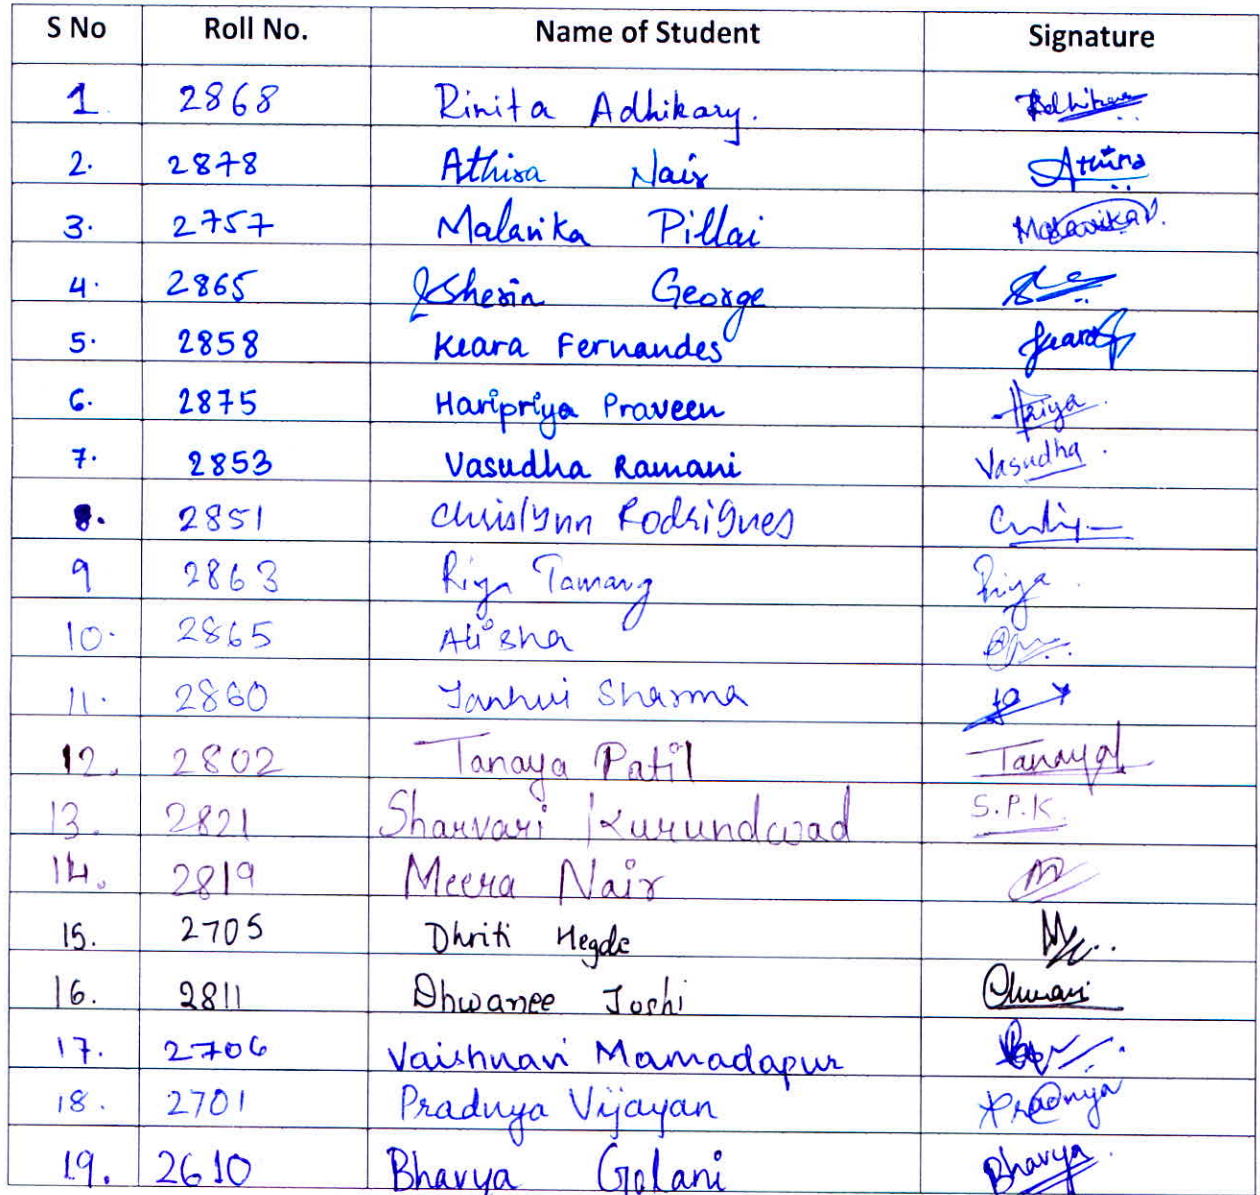 S No Roll No. Name of Student Signature
1. 2868 Rinita Adhikary. Adhikary
2. 2878 Athira Nair Athira
3. 2757 Malavika Pillai MalavikaP.
4. 2865 Sherin George
5. 2858 Keara Fernandes Keara
6. 2875 Haripriya Praveen Hpriya.
7. 2853 Vasudha Ramani Vasudha.
8. 2851 Chrislynn Rodrigues
9 2863 Riya Tamang Riya.
10. 2865 Alisha
11. 2860 Janhvi Sharma
12. 2802 Tanaya Patil Tanaya
13. 2821 Sharvari Kurundwad S.P.K.
14. 2819 Meera Nair
15. 2705 Dhriti Hegde
16. 2811 Dhwanee Joshi
17. 2706 Vaishnavi Mamadapur
18. 2701 Pradnya Vijayan Pradnya
19. 2610 Bhavya Golani Bhavya.